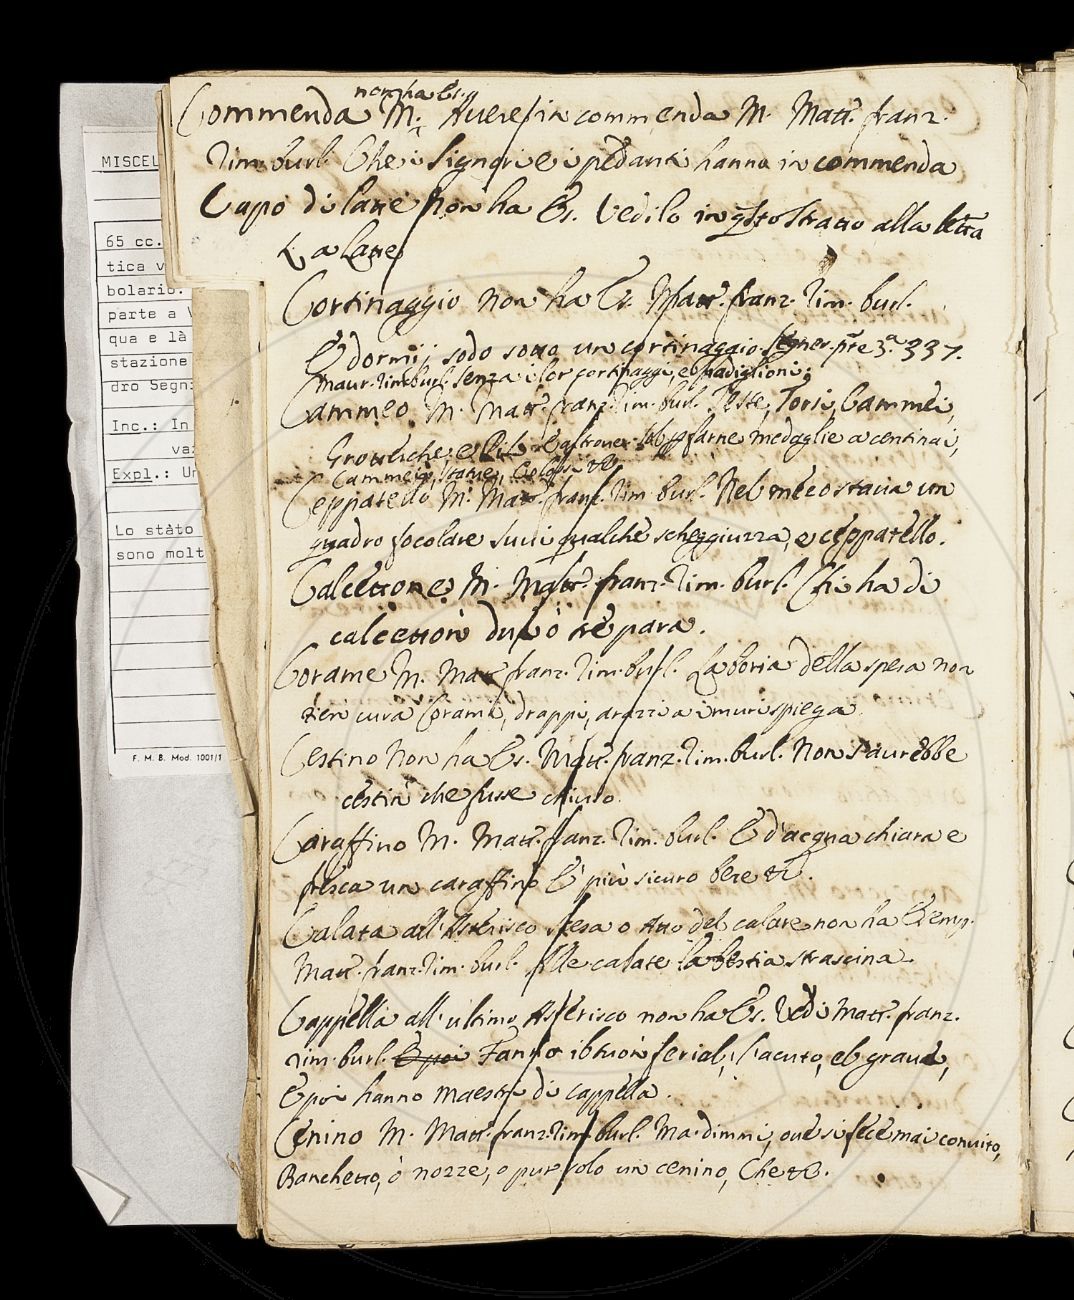 MISCEL
65 cc.
tica v
bolario.
parte a V
qua e là
stazione
dro Segni
Inc.: In
vaz
Expl.: Un
Lo stàto
sono molt
F. M. B. Mod. 1001/1
non ha Es.
Commenda M. Avere in commenda M. Matt. franz.
rim. burl. Che i signori e i pedanti hanno in commenda
Capo di latte non ha Es. Vedilo in qsto stratto alla lettra
L a Latte
Cortinaggio non ha Es. Matt. franz. rim. burl.
E dormij sodo sotto un cortinaggio. Segner. pte 3.a 337.
Maur. rim. burl. senza i lor cortinaggi, e padiglioni:
Cammeo M. Matt. franz. rim. burl. Teste, Torsi, Cammei,
Grottesche, e farne medaglie a centinai,
Cammei, statue, Colossi etc
Ceppatello M. Matt. franz. rim. burl. Nel mezo stava un
quadro focolare suvi qualche scheggiuzza, e ceppatello.
Calcettone M. Matt. franz. rim. burl. Chi ha di
calcettoni due ò trè para.
Corame M. Matt. franz. rim. burl. La boria della spesa non
tien cura Corami, drappi, arazzi a i muri spiega
Cestino Non ha Es. Matt. franz. rim. burl. Non s'aurebbe
cestin che fusse chiuso.
Caraffino M. Matt. franz. rim. burl. E d'acqua chiara e
fresca un caraffino E' più sicuro bere etc.
Calata all'Asterisco scesa o Atto del calare non ha Esemp.
Matt. franz. rim. burl. Alle calate la bestia strascina.
Cappella all'ultimo Asterisco non ha Es. Vedi Matt. franz.
rim. burl. E poi Fanno i btuon ferial, l'acuto, el grave,
E poi hanno maestri di cappella.
Cenino M. Matt. franz. rim. burl. Ma dimmi, ove si fece mai convito,
Banchetto, ò nozze, o pur solo un cenino, Che etc.